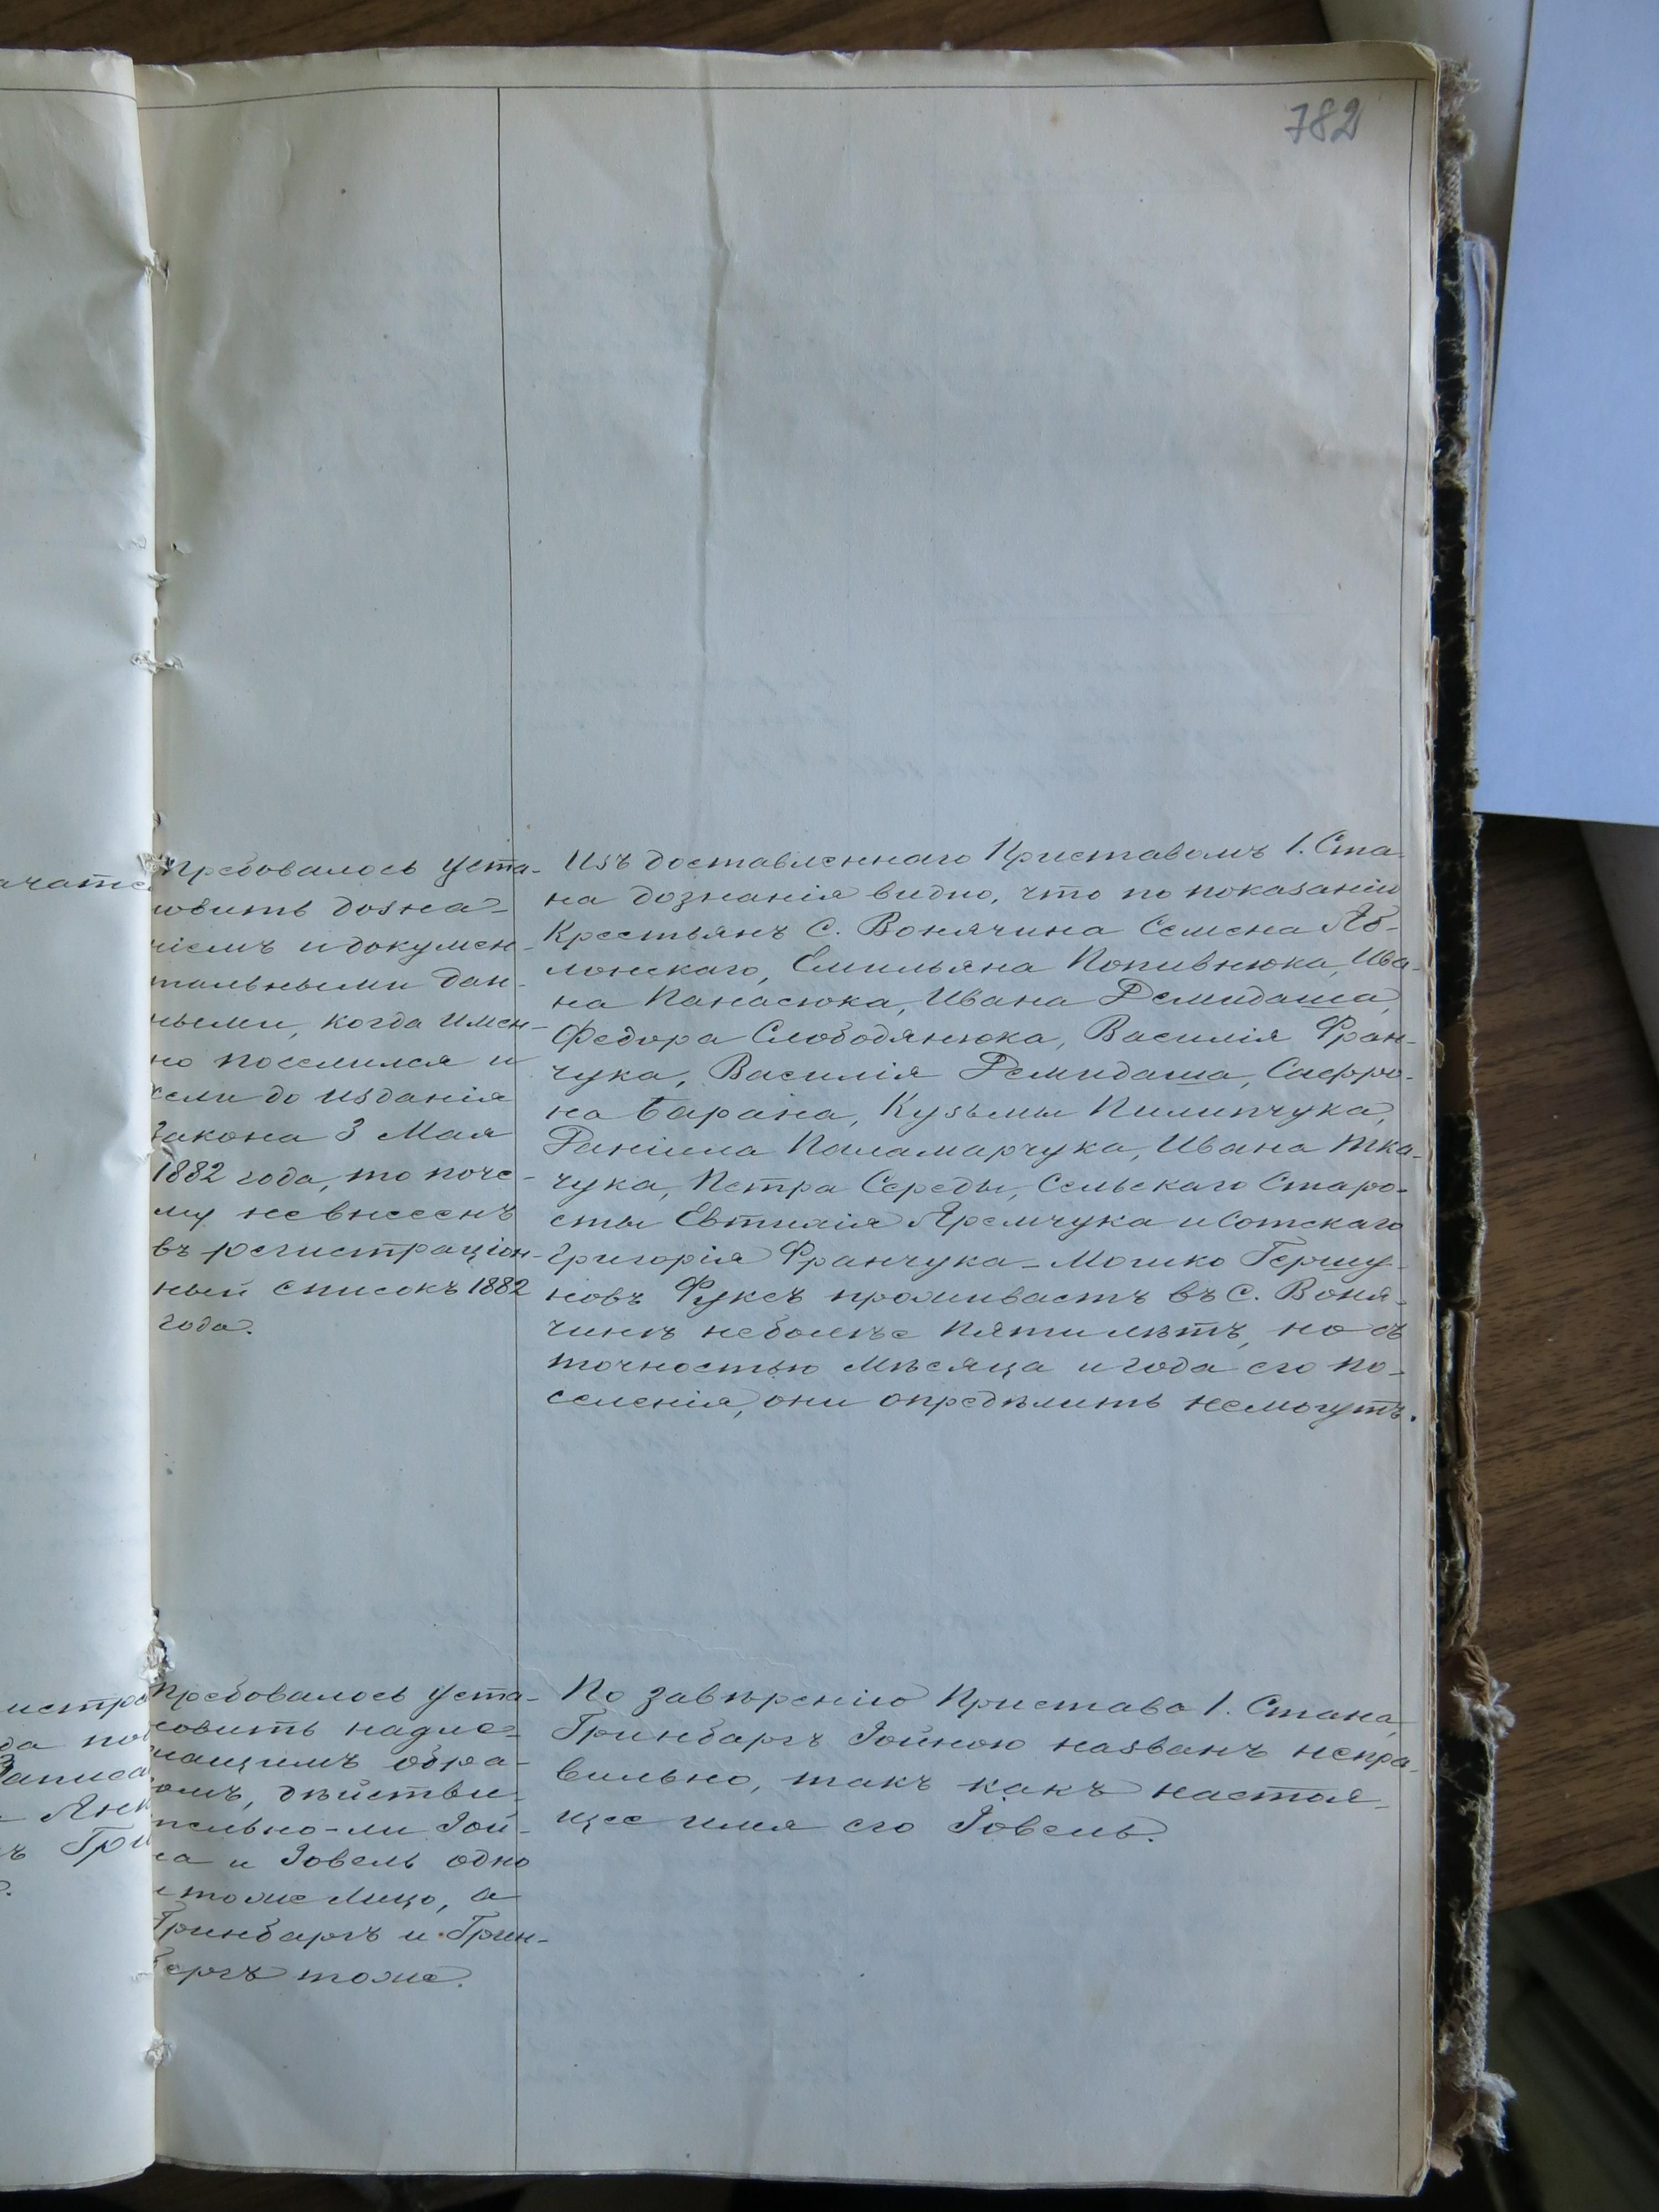 782
Требовалось уста-
новить дозна-
ніемъ и докумен-
тальными дан-
ными, когда имен-
но поселился и
если до изданія
закона 3 Мая
1882 года, то поче-
му невнесенъ
въ регистраціон-
ный списокъ 1882
года.
Изъ доставленнаго Приставомъ 1. Ста-
на дознанія видно, что по показанію
Крестьянъ С. Вонячина Семена Яб-
лонскаго, Емильяна Попивнюка, Ива-
на Панасюка, Ивана Демидаша,
Федора Слободянюка, Василія Фран-
чука, Василія Демидаша, Сафро-
на Барана, Кузьмы Пилипчука,
Даніила Паламарчука, Ивана Тка-
чука, Петра Середы, Сельскаго Старо-
сты Евтихія Яремчука и Сотскаго
Григорія Франчука - Мошко Гершу-
новъ Фуксъ проживаетъ въ С. Воня-
чинѣ неболѣе пяти лѣтъ, но съ
точностью мѣсяца и года его по-
селенія, они опредѣлить немогутъ.
Требовалось уста-
новить надле-
жащимъ обра-
зомъ, дѣйстви-
тельно-ли Іой-
на и Іовель одно
и тоже лицо, а
Гринбаргъ и Грин-
бергъ тоже.
По завѣренію Пристава 1. Стана,
Гринбаргъ Іойною названъ непра-
вильно, такъ какъ настоя-
щее имя его Іовель.